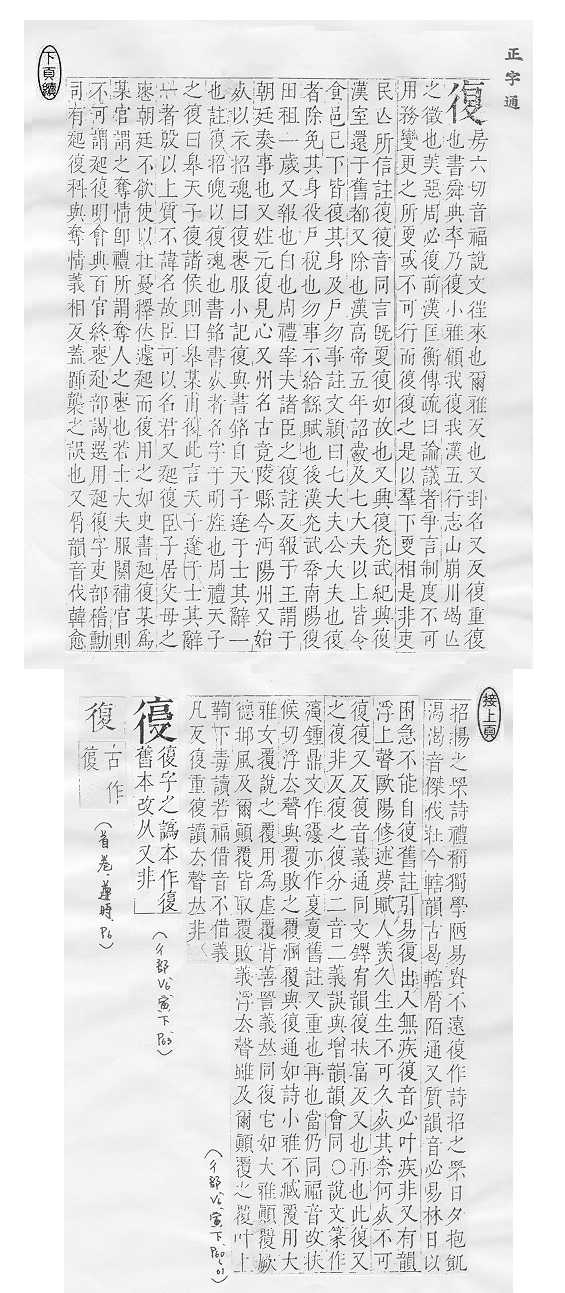 正字通
復
房六切音福說文徃來也爾雅反也又卦名又反復重復
也書舜典卒乃復小雅顧我復我漢五行志山崩川竭亾
之徵也美惡周必復前漢匡衡傳疏曰論議者爭言制度不可
用務變更之所更或不可行而復復之是以羣下更相是非吏
民亾所信註復復音同言旣更復如故也又興復光武紀興復
漢室還于舊都又除也漢高帝五年詔爵及七大夫以上皆令
食邑已下皆復其身及戶勿事註文穎曰七大夫公大夫也復
者除免其身役戶稅也勿事不給繇賦也後漢光武帝南陽復
田租一歲又報也白也周禮宰夫諸臣之復註反報于王謂于
朝廷奏事也又姓元復見心又州名古竟陵縣今沔陽州又始
死以示招魂曰復喪服小記復與書銘自天子達于士其辭一
也註復招魄以復魂也書銘書死者名字于明旌也周禮天子
之復曰皋天子復諸侯則曰皋某甫復此言天子達于士其辭
一者殷以上質不諱名故臣可以名君又起復臣子居父母之
喪朝廷不欲使以壯憂釋仕遽起而復用之如史書起復某爲
某官謂之奪情卽禮所謂奪人之喪也若士大夫服闋補官則
不可謂起復明會典百官終喪赴部謁選用起復字吏部稽勳
司有起復科與奪情義相反蓋踵襲之誤也又屑韻音伐韓愈
下頁續
接上頁
招揚之罘詩禮稱獨學陋易賢不遠復作詩招之罘日夕抱飢
渴渴音傑伐壯今轄韻古曷轄屑陌通又質韻音必易林日以
困急不能自復舊註引易復出入無疾復音必叶疾非又有韻
浮上聲歐陽修述夢賦人羨久生生不可久死其奈何死不可
復復又反復音義通同文鐸宥韻復扶富反又也再也此復又
之復非反復之復分二音二義誤與增韻韻會同○說文篆作
𢕛鍾鼎文作𢕛亦作夏夐舊註又重也再也當仍同福音改扶
候切浮去聲與覆敗之覆溷覆與復通如詩小雅不臧覆用大
雅女覆說之覆用爲虐覆背善詈義𠀤同復它如大雅顚覆厥
德邶風及爾顚覆皆取覆敗義浮去聲雖及爾顚覆之覆叶上
鞫下毒讀若福借音不借義
凡反復重復讀去聲𠀤非
（彳部 V6 寅下 P60、61）
復字之譌本作復
舊本改从又非」
（彳部 V6 寅下 P63）
復 古作
（首卷・遵時 P6）